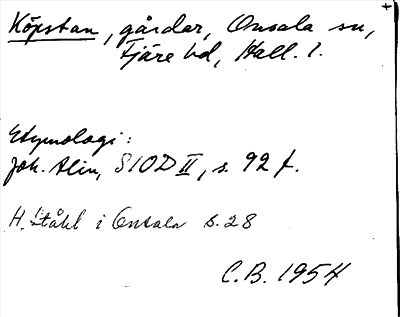 Köpstan, gårdar, Onsala sn,
Fjäre hd, Hall. l.
Etymologi:
Joh. Alin, SIOD II, s. 92 f.
H. Ståhl i Onsala s. 28
C.B. 1954